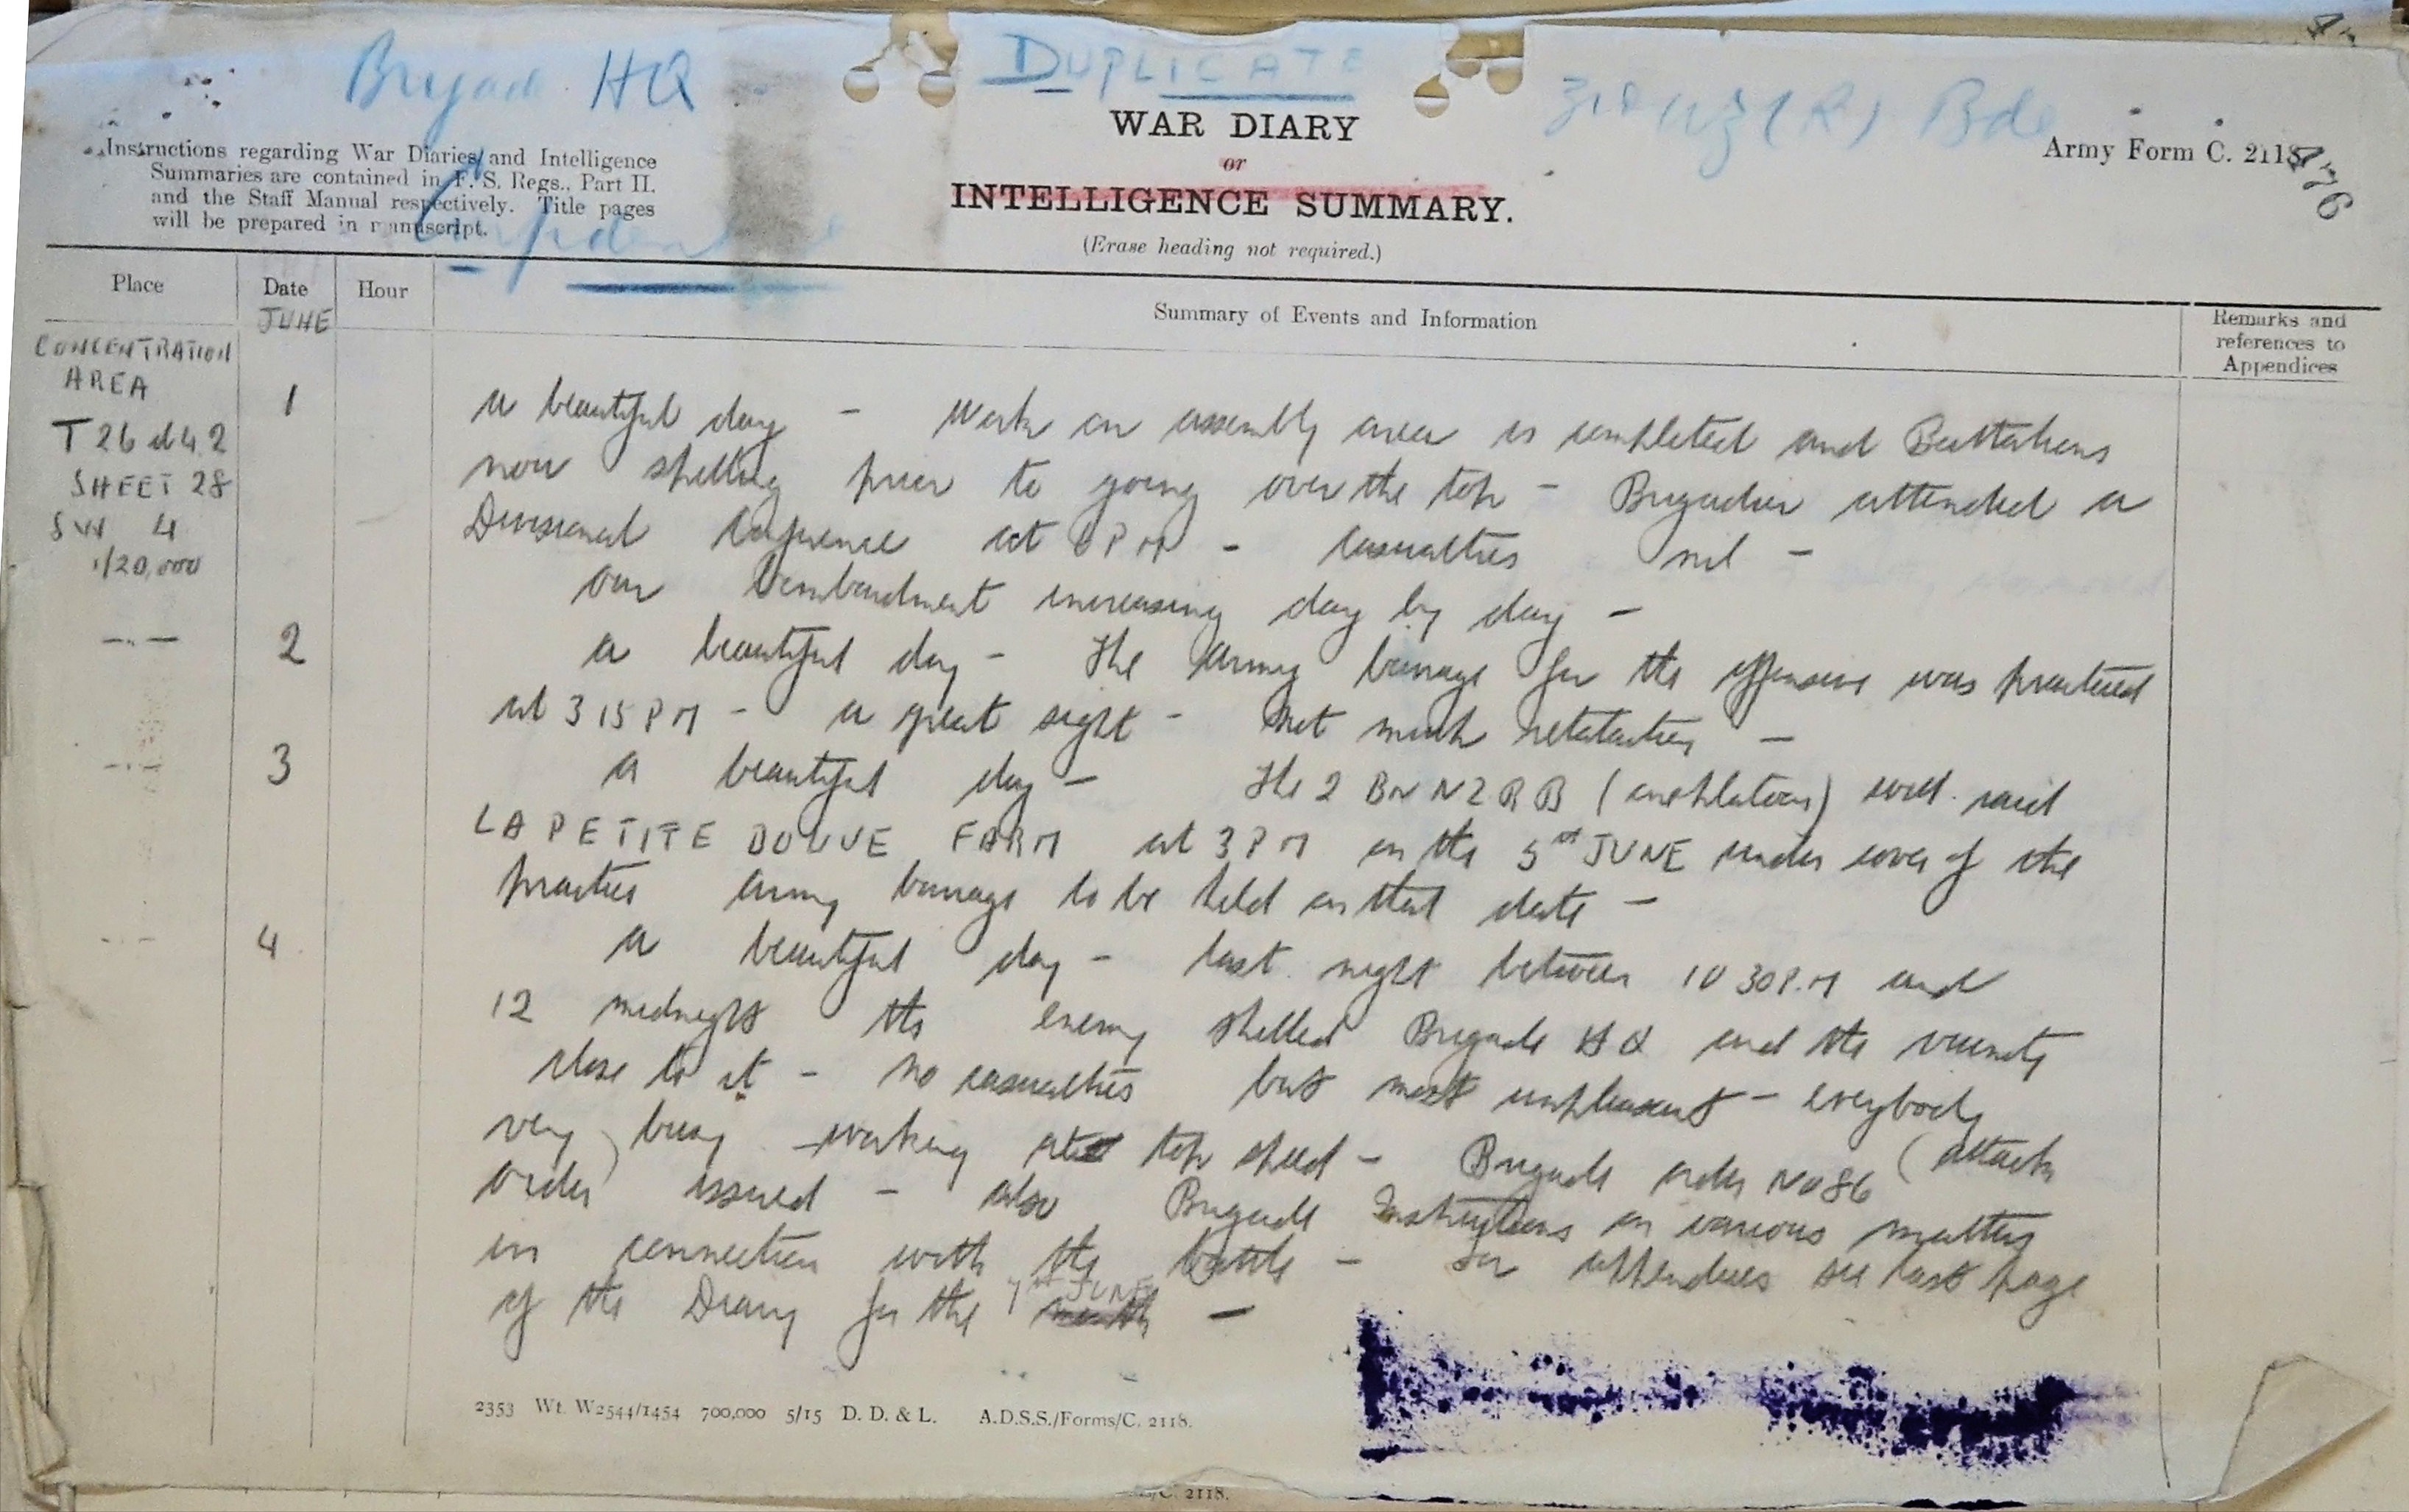 Brigade HQ
DUPLICATE
3rd NZ (R) Bde
Confidential
476
WAR DIARY
or
INTELLIGENCE SUMMARY.
(Erase heading not required.)
Army Form C. 2118.
Instructions regarding War Diaries and Intelligence
Summaries are contained in F. S. Regs., Part II.
and the Staff Manual respectively. Title pages
will be prepared in manuscript.
Place
Date
Hour
Summary of Events and Information
Remarks and
references to
Appendices
JUNE
CONCENTRATION
AREA
T 26 d 4.2
SHEET 28
SW 4
1/20,000
1
a beautiful day - Work on assembly area is completed and Battalions
now spelling prior to going over the top - Brigadier attended a
Divisional Conference at 6 PM - Casualties nil -
our bombardment increasing day by day -
2
a beautiful day - The Army barrage for the offensive was practiced
at 3 15 PM - a great sight - Not much retaliation -
3
a beautiful day - The 2 BN NZRB (one platoon) will raid
LA PETITE DOUVE FARM at 3 PM on the 5th JUNE under cover of the
practice Army barrage to be held on that date -
4
a beautiful day - last night between 10 30 P.M and
12 midnight the enemy shelled Brigade HQ and the vicinity
close to it - no casualties but most unpleasant - everybody
very busy - working at top speed - Brigade order No 86 (attack
order) issued - also Brigade Instructions on various matters
in connection with the battle - For appendices see last page
of the Diary for the 7th JUNE month -
2353 Wt. W2544/1454 700,000 5/15 D. D. & L. A.D.S.S./Forms/C. 2118.
/C. 2118.